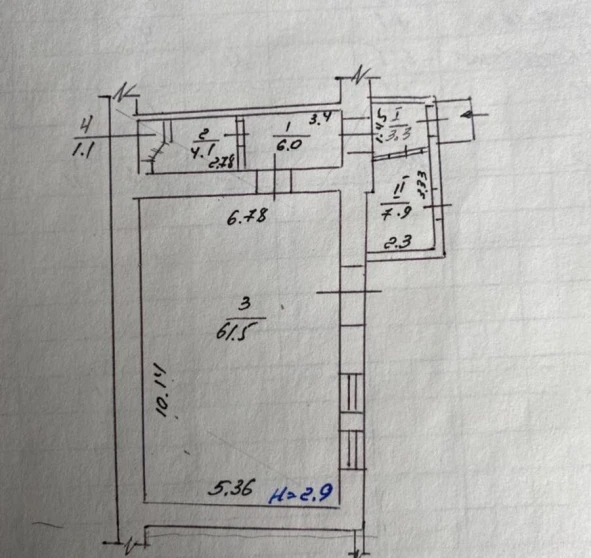 4
1.1
2
4.1
2.78
1
6.0
3.4
I
3.3
1.45
II
7.9
3.33
2.3
6.78
3
61.5
10.14
5.36
H=2.9